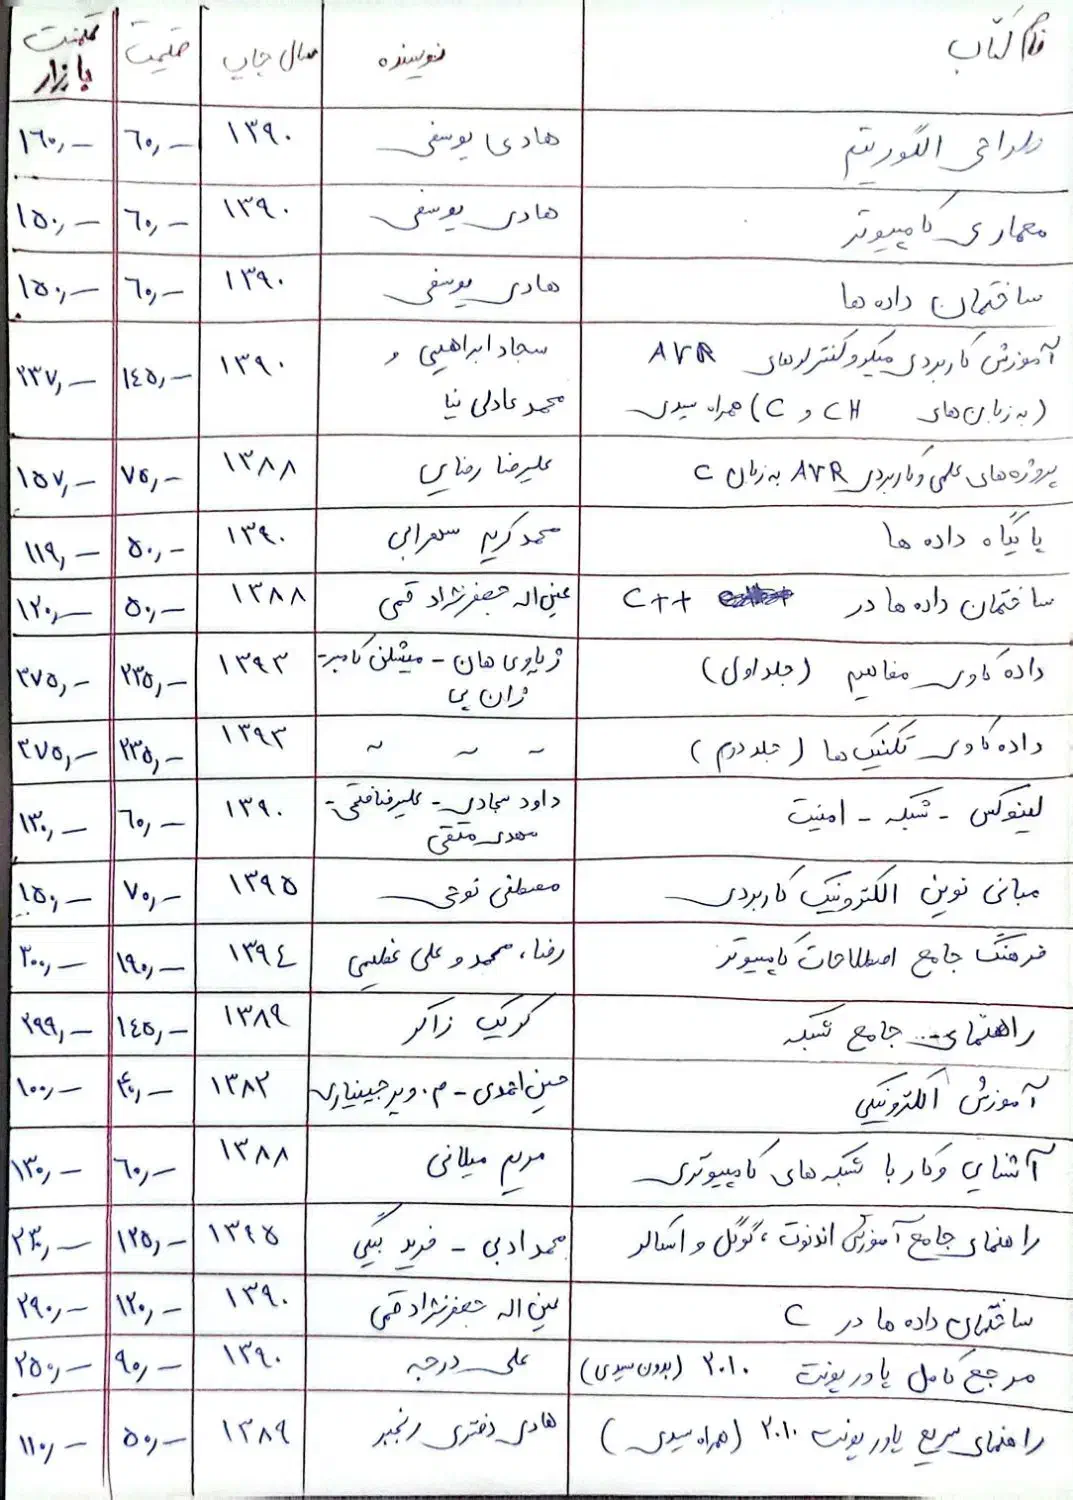 نام کتاب نویسنده سال چاپ قیمت قیمت بازار
طراحی الگوریتم هادی یوسفی ۱۳۹۰ ۶۰,— ۱۶۰,—
معماری کامپیوتر هادی یوسفی ۱۳۹۰ ۶۰,— ۱۵۰,—
ساختمان داده ها هادی یوسفی ۱۳۹۰ ۶۰,— ۱۵۰,—
آموزش کاربردی میکروکنترلرهای AVR سجاد ابراهیمی و ۱۳۹۰ ۱۴۵,— ۲۳۷,—
(به زبان‌های CH و C) همراه سیدی محمد عادلی نیا
پروژه‌های علمی و کاربردی AVR به زبان C علیرضا رضایی ۱۳۸۸ ۷۵,— ۱۵۷,—
پایگاه داده ها محمد کریم سهرابی ۱۳۹۰ ۵۰,— ۱۱۹,—
ساختمان داده ها در C++ عین اله جعفرنژاد قمی ۱۳۸۸ ۵۰,— ۱۲۰,—
داده کاوی مفاهیم (جلد اول) ژیاوی هان - میشلن کامبر - ۱۳۹۳ ۲۳۵,— ۳۷۵,—
ژان پی
داده کاوی تکنیک ها (جلد دوم) ~ ~ ~ ۱۳۹۳ ۲۳۵,— ۳۷۵,—
لینوکس - شبکه - امنیت داود سجادی - علیرضا فتحی - ۱۳۹۰ ۶۰,— ۱۳۰,—
مهدی متقی
مبانی نوین الکترونیک کاربردی مصطفی نوحی ۱۳۹۵ ۷۰,— ۱۵۰,—
فرهنگ جامع اصطلاحات کامپیوتر رضا، محمد و علی عظیمی ۱۳۹۴ ۱۹۰,— ۳۰۰,—
راهنمای... جامع شبکه کریک زاکر ۱۳۸۹ ۱۴۵,— ۲۹۹,—
آموزش الکترونیکی حسن احمدی - م. ویرجینیاری ۱۳۸۲ ۴۰,— ۱۰۰,—
آشنایی و کار با شبکه های کامپیوتری مریم میلانی ۱۳۸۸ ۶۰,— ۱۳۰,—
راهنمای جامع آموزش اندنوت، گوگل و اسکالر محمد ادبی - فرید بیگی ۱۳۹۵ ۱۲۵,— ۲۳۰,—
ساختمان داده ها در C عین اله جعفرنژاد قمی ۱۳۹۰ ۱۲۰,— ۲۹۰,—
مرجع کامل پاورپونت ۲۰۱۰ (بدون سیدی) علی درجه ۱۳۹۰ ۹۰,— ۲۵۰,—
راهنمای سریع پاورپونت ۲۰۱۰ (همراه سیدی) هادی دفتری رنجبر ۱۳۸۹ ۵۰,— ۱۱۰,—